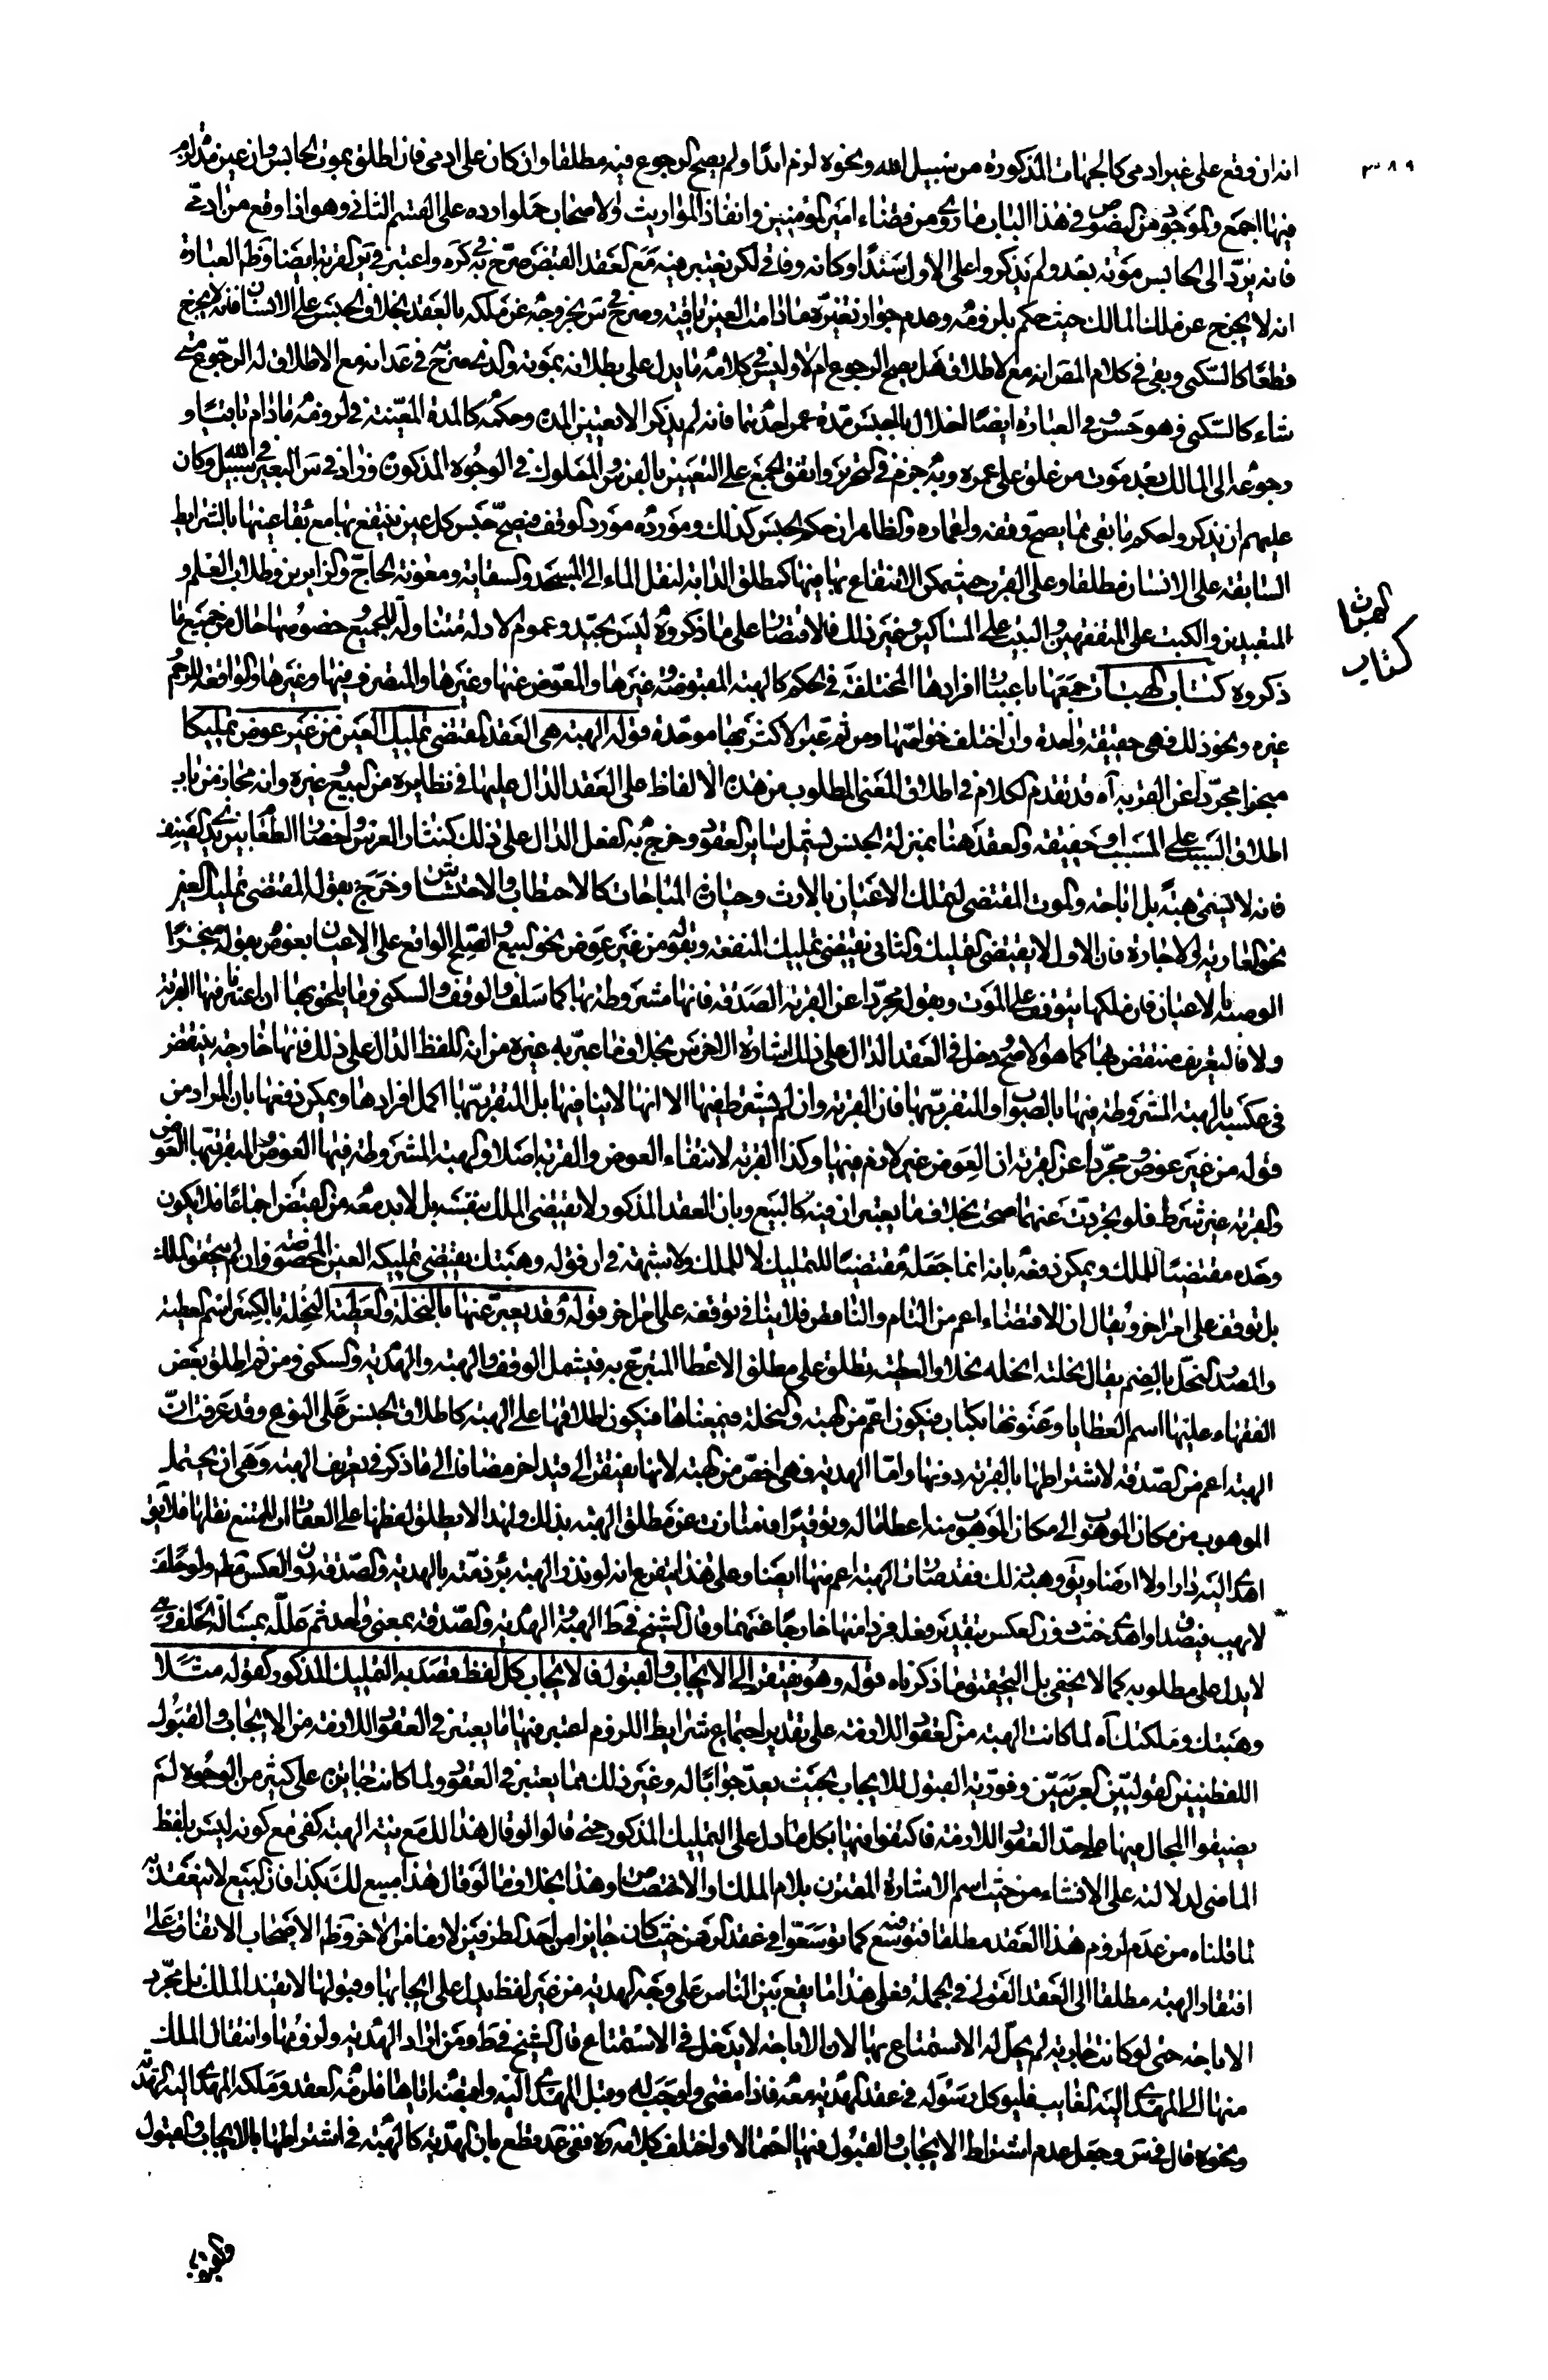 ٣٨٩
انه ان وقع على غير ادمى كالجهات المذكورة من سبيل الله ونحوه لزم ابدا ولم يصح الرجوع فيه مطلقا وان كان على ادمى فان اطلق بموت الحابس وان عين مدة لزم
فيها اجمع والموجود من النصوص في هذا الباب ما روى من قضاء امير المؤمنين وانفاذ المواريث والاصحاب حملوا رده على القسم الثاني وهو اذا وقع من ادمى
فانه يرد الى الحابس موته بعد ولم يذكروا على الاول سندا وكانه وفاقى لكن يعتبر فيه مع العقد القبض صرح به في كره واعتبر في ير القربة ايضا وظ العبارة
انه لا يخرج عن ملك المالك حيث حكم بلزومه وعدم جواز تغيره ما دامت العين باقية وصرح في س بخروجه عن ملكه بالعقد بخلاف الحبس على الانسان فانه لا يخرج
قطعا كالسكنى وبقى في كلام المصر انه مع الاطلاق هل يصح الرجوع ام لا وليس في كلامه ما يدل على بطلانه بموته والذى صرح في عد انه مع الاطلاق له الرجوع متى
شاء كالسكنى فهو حسن وفى العبارة ايضا اخلال بالحبس مدة عمر احدهما فانه لم يذكر الا تعيين المدة وحكمه كالمدة المعينة في لزومه ما دام ثابتا و
رجوعه الى المالك بعد موت من غلق على عمره وبه جزم في التحرير واتفق الجمع على التعيين بالفرس والمملوك في الوجوه المذكورة وزاد في س البعير في سبيل الله وكان
عليهم ان يذكروا حكم ما بقى مما يصح وقفه واعماره والظاهر ان حكم الحبس كذلك ومورده مورد الوقف فيصح حبس كل عين ينتفع بها مع بقاء عينها بالشرايط
السابقة على الانسان مطلقا وعلى القرب حيث يمكن الانتفاع بها فيها كمطلق الدابة لنقل الماء الى المسجد والسقاية ومعونة الحاج والزايرين وطلاب العلم و
المتعبدين والكتب على المتفقهين والبيت على المساكين وغير ذلك فالاقتصار على ما ذكروه ليس بجيد وعموم الادلة متناولة للجميع وخصوصها خال من جميع ما
ذكروه كتاب الهبات جمعها باعتبار افرادها المختلفة في الحكم كالهبة المقبوضة وغيرها والمعوض عنها وغيرها والمتصرف فيها وغيرها والواقعة للرحم
غيره ونحو ذلك فهى حقيقة واحدة وان اختلف خواصها ومن ثم عبر الاكثر بها موحدة قوله الهبة هى العقد المقتضى تمليك العين من غير عوض تمليكا
منجزا مجردا عن القربة آه قد تقدم الكلام في اطلاق المعنى المطلوب من هذه الالفاظ على العقد الدال عليها في نظايره من البيع وغيره وانه مجاز من باب
اطلاق السبب على المسبب او حقيقة والعقد هنا بمنزلة الجنس يشمل ساير العقود وخرج به الفعل الدال على ذلك كنثار العرس واحضار الطعام بين يدى الضيف
فانه لا يسمى هبة بل اباحة والموت المقتضى لتملك الاعيان بالارث وحيازة المباحات كالاحتطاب والاحتشاش وخرج بقوله المقتضى تمليك العين
نحو العارية والاجارة فان الاول لا يقتضى تمليك والثانى يقتضى تمليك المنفعة وبقوله من غير عوض نحو البيع والصلح الواقع على الاعيان بعوض وبقوله منجزا
الوصية بالاعيان فان ملكها يتوقف على الموت وبقوله مجردا عن القربة الصدقة فانها مشروطة بها كما سلف والوقف والسكنى وما يلحق بها ان اعتبرنا فيها القربة
والا فالتعريف منتقض بها كما هو الاصح ودخل في العقد الدال على ذلك اشارة الاخرس بخلاف ما عبر به غيره من انه اللفظ الدال على ذلك فانها خارجة ينتقض
في عكسه بالهبة المشروطة فيها بالصواب او المتقرب بها فان القربة وان لم يشترط فيها الا انها لا ينافيها بل المتقرب بها اكمل افرادها ويمكن دفعها بان المراد من
قوله من غير عوض ومجردا عن القربة ان العوض غير لازم فيها وكذا القربة لانتفاء العوض والقربة اصلا والهبة المشروطة فيها العوض والمتقرب بها العوض
والقربة غير شرط فلو تجردت عنهما صحت بخلاف ما يعتبران فيه كالبيع وبان العقد المذكور لا يقتضى الملك بنفسه بل لابد معه من القبض اجماعا فلا يكون
وحده مقتضيا للملك ويمكن دفعه بانه انما جعله مقتضيا للتمليك لا للملك ولا شبهة في ان قوله وهبتك يقتضى تمليكه العين المخصوصة وان لم يتحقق الملك
بل توقف على امر اخر ويقال ان الاقتضاء اعم من التام والناقص فلا ينافى توقفه على امر اخر قوله وقد يعبر عنها بالنحلة والعطية النحلة بالكسر اسم العطية
والمصدر النحل بالضم يقال نحلته انحله نحلا والعطية يطلق على مطلق الاعطاء المتبرع به فيشمل الوقف والهبة والهدية والسكنى ومن ثم اطلق بعض
الفقهاء عليها اسم العطايا وعنونها بكتاب فيكون اعم من الهبة والنحلة فيمعناها فيكون اطلاقها على الهبة كاطلاق الجنس على النوع وقد عرفت ان
الهبة اعم من الصدقة لاشتراطها بالقربة دونها واما الهدية فهى اخص من الهبة لانها يفتقر الى قيد اخر مضافا الى ما ذكر في تعريف الهبة وهى ان يحتمل
الموهوب من مكان الموهوب الى مكان الموهوب منه اعظاما له وتوقيرا فامتازت عن مطلق الهبة بذلك ولهذا لا يطلق لفظها على العقارات الممتنع نقلها فلا يق
اهدى اليه دارا ولا ارضا ويق وهبه ذلك فقد صارت الهبة اعم منها ايضا وعلى هذا يتفرع انه لو نذر الهبة برء ذمته بالهدية والصدقة دون العكس مط ولو حلف
لا يهب فتصدق او اهدى حنث دون العكس بتقدير فعل فرد منها خارجا عنهما وقال الشيخ في ط الهبة والهدية والصدقة بمعنى واحد ثم علله بمسالة الحلف وهى
لا يدل على مطلوبه كما لا يخفى بل التحقيق ما ذكرناه قوله وهو يفتقر الى الايجاب والقبول فالايجاب كل لفظ قصد به التمليك المذكور كقوله مثلا
وهبتك وملكتك آه لما كانت الهبة من العقود اللازمة على تقدير اجتماع شرايط اللزوم اعتبر فيها ما يعتبر في العقود اللازمة من الايجاب والقبول
اللفظيين القوليين العربيين وفورية القبول للايجاب بحيث يعد جوابا له وغير ذلك مما يعتبر في العقود ولما كانت جايزة على كثير من الوجوه لم
يضيقوا المجال فيها على حد العقود اللازمة فاكتفوا فيها بكل ما دل على التمليك المذكور حتى قالوا لو قال هذا لك مع نية الهبة كفى مع كونه ليس بلفظ
الماضى لدلالته على الانشاء من حيث اسم الاشارة المقترن بلام الملك او الاختصاص وهذا بخلاف ما لو قال هذا مبيع لك بكذا فان البيع لا ينعقد به
لما قلناه من عدم لزوم هذا العقد مطلقا فتوسع فيه كما توسعوا في عقد الرهن حيث كان جايزا من احد الطرفين لازما من الاخر وظ الاصحاب الاتفاق على
افتقار الهبة مطلقا الى العقد القولى في الجملة فعلى هذا ما يقع بين الناس على وجه الهدية من غير لفظ يدل على ايجابها وقبولها لا يفيد الملك بل مجرد
الاباحة حتى لو كانت جارية لم يحل له الاستمتاع بها لان الاباحة لا يدخل في الاستمتاع قال الشيخ في ط ومن اراد الهدية ولزومها وانتقال الملك
منها الى المهدى اليه الغايب فليوكل رسوله في عقد الهدية معه فاذا مضى واوجب له وقبل المهدى اليه واقبضه اياها فلزمه العقد وملكه المهدى اليه الهدية
ونحوه قال في س وجعل عدم اشتراط الايجاب والقبول فيها احتمالا واختلف كلامه ره ففى عد قطع بان الهدية كالهبة في اشتراطها بالايجاب والقبول
الهبات
كتاب